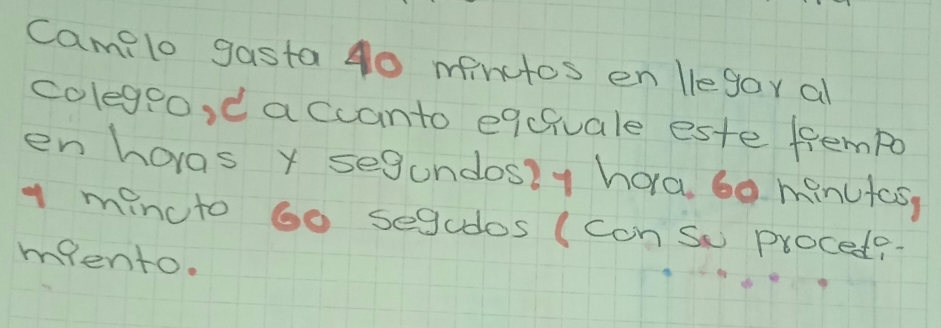 Camilo gasta 40 minutos en llegar al
colegio, ¿ a cuanto equivale este tiempo
en horas y segundos? 1 hora 60 minutos,
1 minuto 60 segudos (con su procedi-
miento.